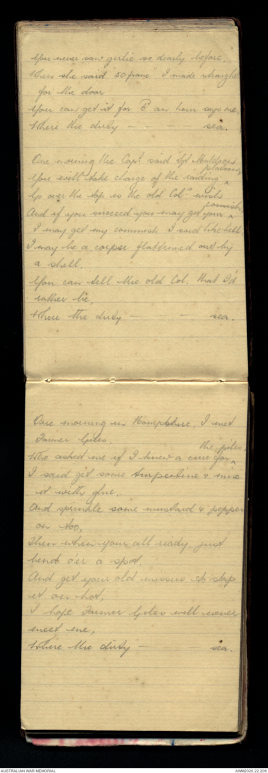 You never saw girlie so dearly before.
Then she said 50 franc. I made straight
for the door
You can get it for 8 an hour says me
Where the dirty — — — sea.
One morning the Capt said "Sgt
You will take charge of the raiding
platoon,
Up over the top is the old Col's wish
And if you succeed you may get your
commish
I may get my commish I said like hell
I may be a corpse flattened out by
a shell.
You can tell the old Col. that I'd
rather be,
Where the dirty — — — sea.
One morning in Hampshire, I met
Farmer Giles.
Who asked me if I knew a cure for
the piles.
I said get some turpentine & mix
it with glue.
And sprinkle some mustard & pepper
on too,
Then when your all ready just
bend o'er a spot
And get your old missus to slap
it on hot.
I hope Farmer Giles will never
meet me,
Where the dirty — — — sea.
AUSTRALIAN WAR MEMORIAL